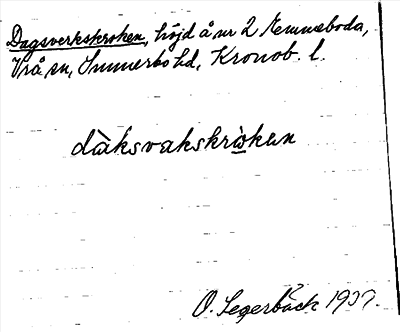 Dagsverkskroken, höjd å nr 2 Nemmeboda,
Vrå sn, Sunnerbo hd, Kronob. l.
dàksvakskrɷ̀kan
O. Segerbäck 1937.